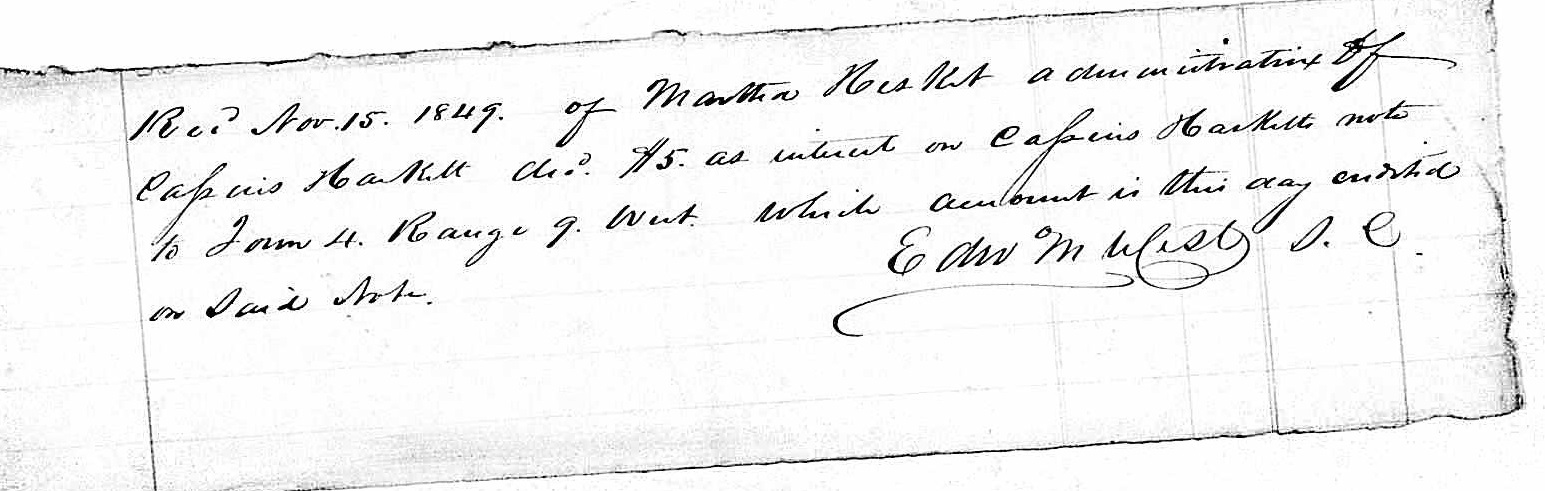 Recd Nov. 15. 1849. of Martha Hesket administratrix Of
Cassius Haskett decd. $5. as interest on Cassius Hasketts note
to Town 4. Range 9. West. which amount is this day credited
on said Note.
Edw M West S. C.